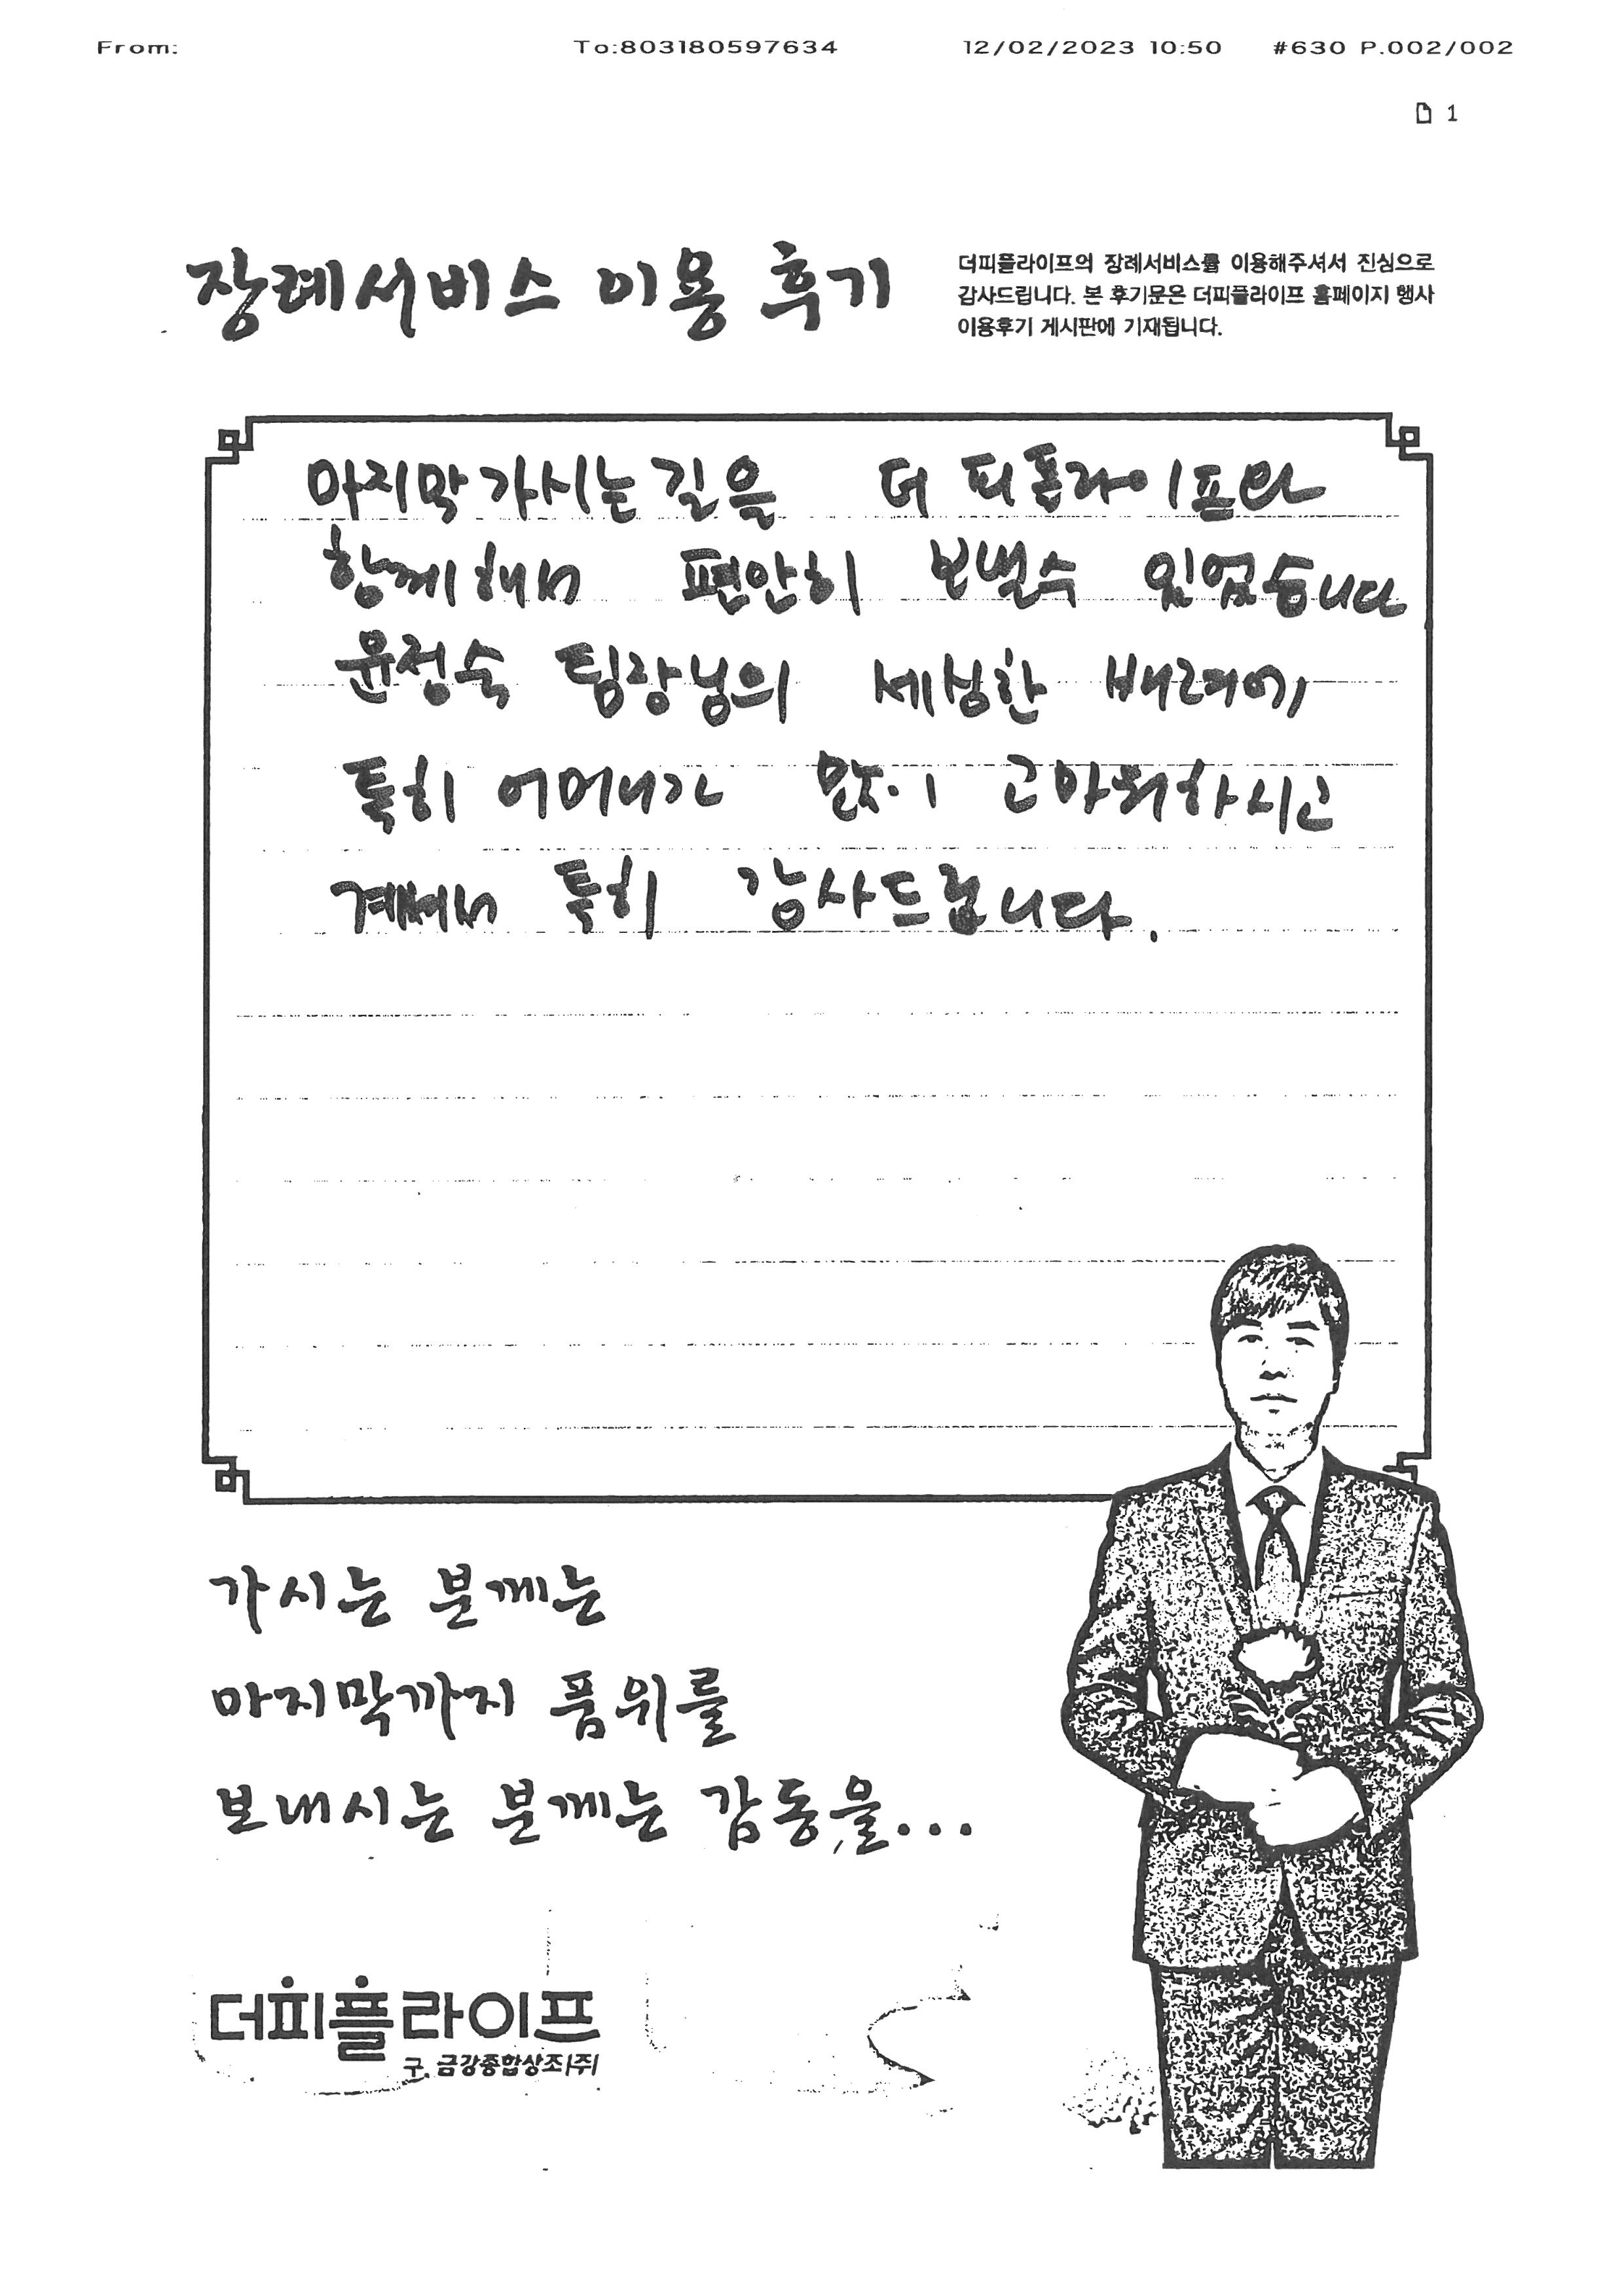 From: To:803180597634 12/02/2023 10:50 #630 P.002/002
1
장례서비스 이용 후기
더피플라이프의 장례서비스를 이용해주셔서 진심으로
감사드립니다. 본 후기문은 더피플라이프 홈페이지 행사
이용후기 게시판에 기재됩니다.
마지막 가시는 길을 더 피플라이프와
함께해서 편안히 보낼수 있었습니다
윤정숙 팀장님의 세심한 배려에
특히 어머니가 많이 고마워하시고
계셔서 특히 감사드립니다.
가시는 분께는
마지막까지 품위를
보내시는 분께는 감동을...
더피플라이프
구. 금강종합상조(주)